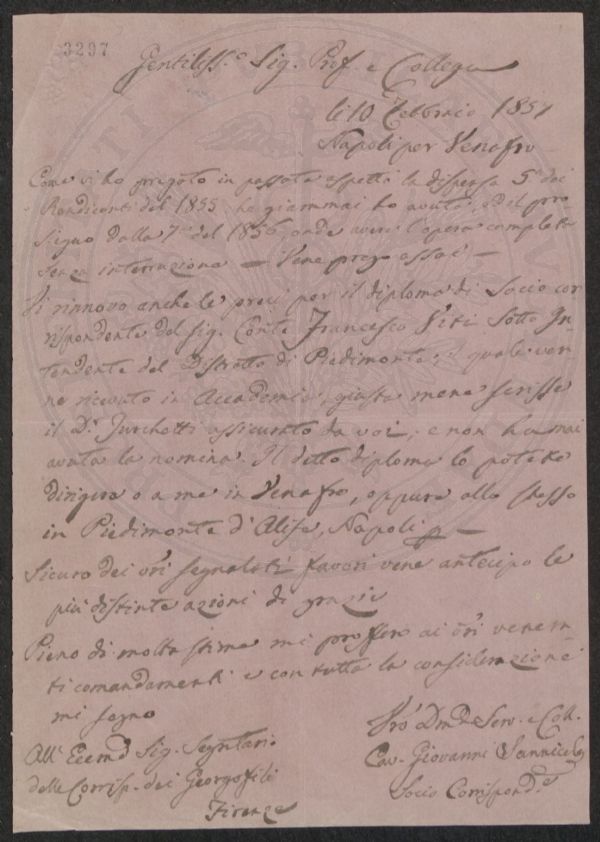 3297
Gentiliss.º Sig. Prof. e Collega
li 10 Febbraio 1857
Napoli per Venafro
Come vi ho pregato in passato aspetto la dispensa 5ª dei
Rendiconti del 1855, ho giammai ho avuta, ed il pro
sieguo dalla 7ª del 1856 onde avere l'opera completa
senza interruzione — Vene prego assai —
Vi rinnovo anche le preci per il diploma di Socio cor
rispondente del Sig. Conte Francesco Viti Sotto In-
tendente del Distretto di Piedimonte, il quale ven-
ne ricevuto in Accademia, giusta mene scrisse
il D.r assicurato da voi, e non ha mai
avuta la nomina. Il detto diploma lo potete
dirigere o a me in Venafro, oppure allo stesso
in Piedimonte d'Alife, Napoli —
Sicuro dei vri segnalati favori vene antecipo le
più distinte azioni di grazie
Pieno di molta stima mi proffero ai vri venera-
ti comandamenti e con tutta la considerazione
mi segno
Vro Dmo Serv. e Coll.
Cav. Giovanni Sannicola
Socio Corrispond.e
All' Eccmo Sig. Segretario
delle Corrisp. dei Georgofili
Firenze